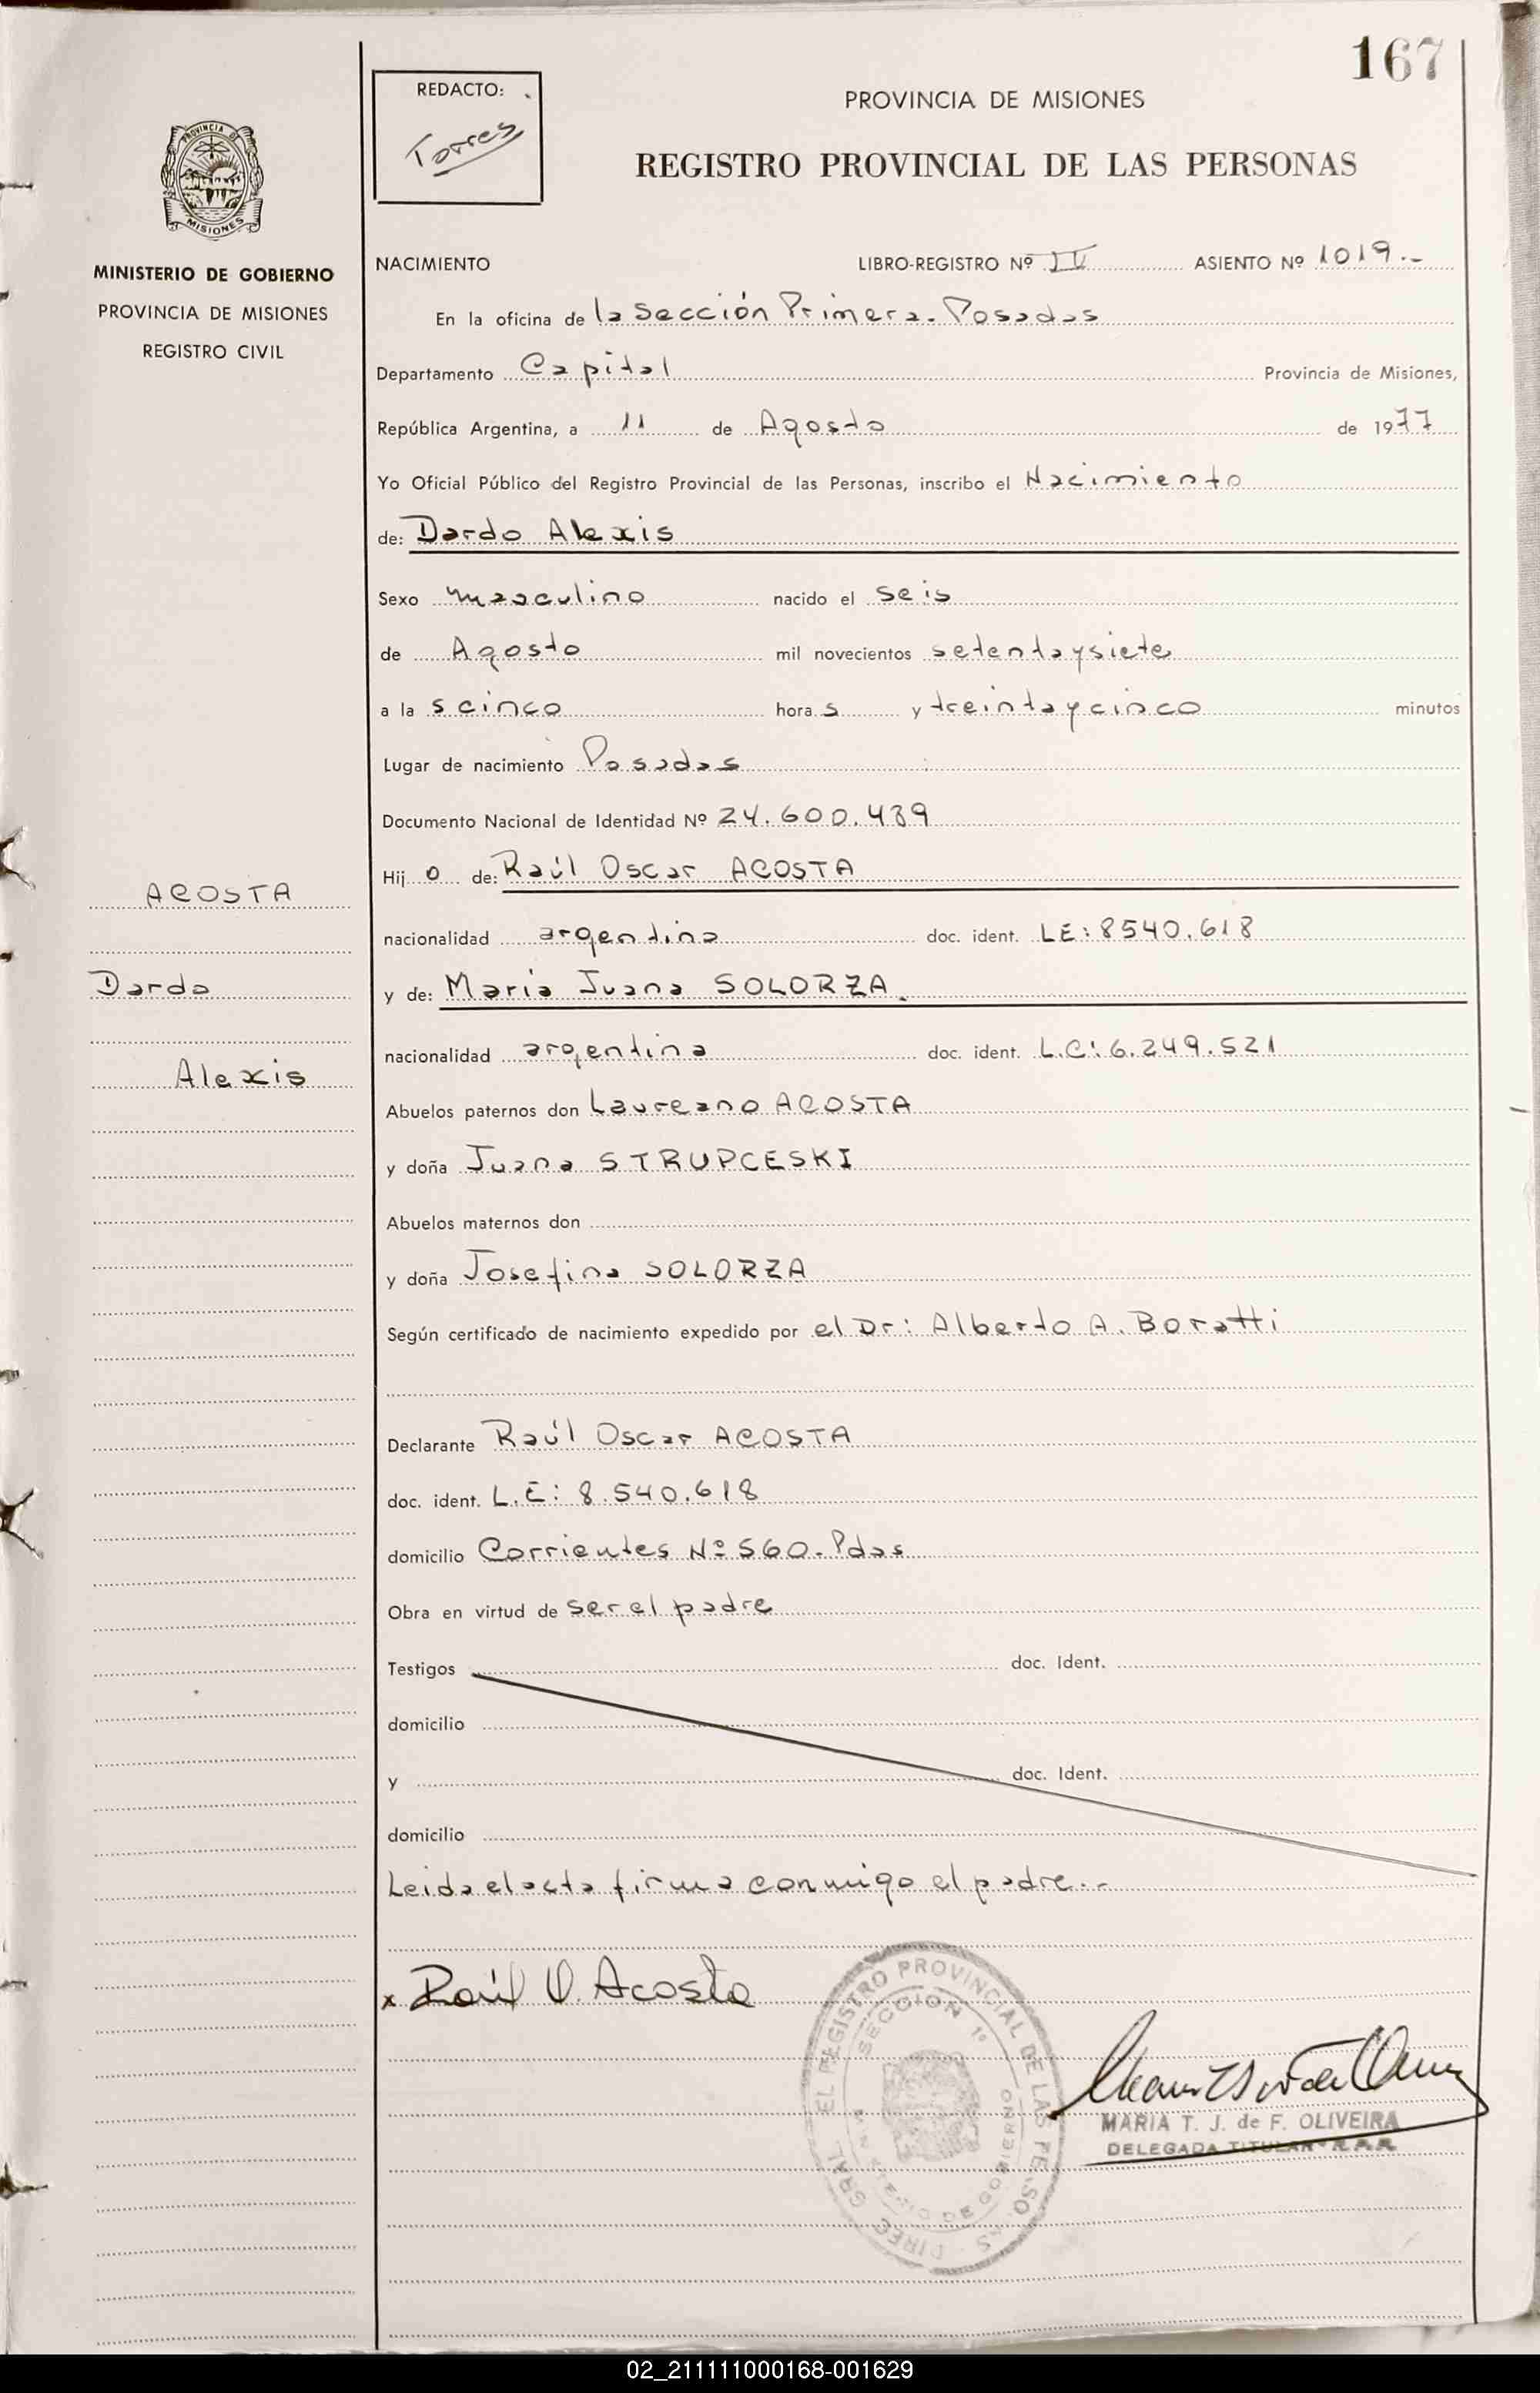 167
REDACTO:
Torres
PROVINCIA DE MISIONES
REGISTRO PROVINCIAL DE LAS PERSONAS
PROVINCIA DE
MISIONES
MINISTERIO DE GOBIERNO
PROVINCIA DE MISIONES
REGISTRO CIVIL
NACIMIENTO LIBRO-REGISTRO Nº IV ASIENTO Nº 1019.-
En la oficina de la Sección Primera. Posadas
Departamento Capital Provincia de Misiones,
República Argentina, a 11 de Agosto de 1977
Yo Oficial Público del Registro Provincial de las Personas, inscribo el Nacimiento
de: Dardo Alexis
Sexo masculino nacido el seis
de Agosto mil novecientos setentaysiete
a la s cinco hora s y treintaycinco minutos
Lugar de nacimiento Posadas
Documento Nacional de Identidad Nº 24.600.489
Hij o de: Raúl Oscar ACOSTA
ACOSTA
nacionalidad argentina doc. ident. LE: 8540.618
Dardo
y de: Maria Juana SOLORZA.
nacionalidad argentina doc. ident. L.C: 6.249.521
Alexis
Abuelos paternos don Laureano ACOSTA
y doña Juana STRUPCESKI
Abuelos maternos don
y doña Josefina SOLORZA
Según certificado de nacimiento expedido por el Dr: Alberto A. Boratti
Declarante Raúl Oscar ACOSTA
doc. ident. L.E: 8.540.618
domicilio Corrientes Nº 560. Pdas
Obra en virtud de ser el padre
Testigos doc. Ident.
domicilio
y doc. Ident.
domicilio
Leida el acta firma conmigo el padre.-
x Raúl O. Acosta
DIREC. GRAL. EL REGISTRO PROVINCIAL DE LAS PERSONAS
SECCION 1º
DE GOBIERNO
MARIA T. J. de F. OLIVEIRA
DELEGADA TITULAR
02_211111000168-001629